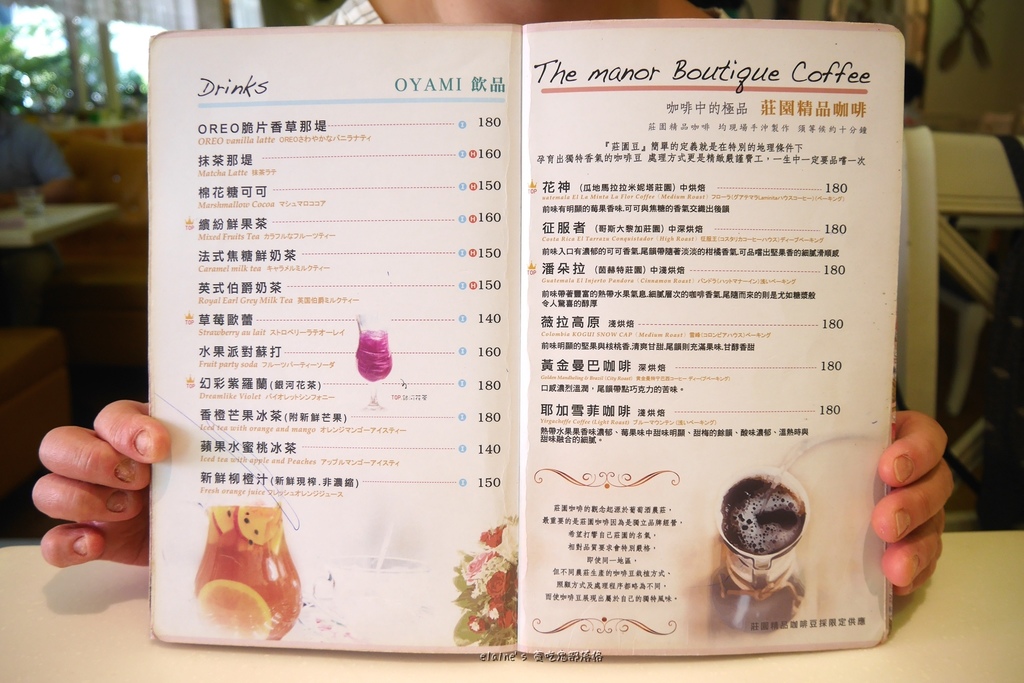 Drinks
OYAMI 飲品
OREO脆片香草那堤 180
OREO vanilla latte OREOさわやかなバニラナティ
抹茶那堤 H 160
Matcha Latte 抹茶ラテ
棉花糖可可 H 150
Marshmallow Cocoa マシュマロココア
TOP 繽紛鮮果茶 H 160
Mixed Fruits Tea カラフルなフルーツティー
法式焦糖鮮奶茶 H 150
Caramel milk tea キャラメルミルクティー
英式伯爵奶茶 H 150
Royal Earl Grey Milk Tea 英国伯爵ミルクティー
TOP 草莓歐蕾 140
Strawberry au lait ストロベリーラテオーレイ
水果派對蘇打 160
Fruit party soda フルーツパーティーソーダ
TOP 幻彩紫羅蘭(銀河花茶) 180
Dreamlike Violet バイオレットシンフォニー
香橙芒果冰茶(附新鮮芒果) 180
Iced tea with orange and mango オレンジマンゴーアイスティー
蘋果水蜜桃冰茶 140
Iced tea with apple and Peaches アップルマンゴーアイスティ
新鮮柳橙汁(新鮮現榨.非濃縮) 150
Fresh orange juice フレッシュオレンジジュース
The manor Boutique Coffee
咖啡中的極品 莊園精品咖啡
莊園精品咖啡 均現場手沖製作 須等候約十分鐘
『莊園豆』簡單的定義就是在特別的地理條件下
孕育出獨特香氣的咖啡豆 處理方式更是精緻嚴謹費工，一生中一定要品嚐一次
TOP 花神 (瓜地馬拉拉米妮塔莊園) 中烘焙 180
uatemala El La Minta La Flor Coffee (Medium Roast)
前味有明顯的莓果香味.可可與焦糖的香氣交織出後韻
征服者 (哥斯大黎加莊園) 中深烘焙 180
Costa Rica El Tarrazu Conquistador (High Roast)
前味入口有濃郁的可可香氣.尾韻帶隨著淡淡的柑橘香氣.可品嚐出堅果香的細膩滑順感
TOP 潘朵拉 (茵赫特莊園) 中淺烘焙 180
Guatemala El Injerto Pandora (Cinnamon Roast)
前味帶著豐富的熱帶水果氣息.細膩層次的咖啡香氣.尾隨而來的則是尤如糖漿般
令人驚喜的醇厚
薇拉高原 淺烘焙 180
Colombia KOGUI SNOW CAP (Medium Roast)
前味明顯的堅果與核桃香.清爽甘甜.尾韻則充滿果味.甘醇香甜
黃金曼巴咖啡 深烘焙 180
口感濃烈溫潤，尾韻帶點巧克力的苦味。
耶加雪菲咖啡 淺烘焙 180
Yirgacheffe Coffee (Light Roast)
熱帶水果果香味濃郁、莓果味中甜味明顯、甜梅的餘韻、酸味濃郁、溫熱時與
甜味融合的細膩。
莊園咖啡的觀念起源於葡萄酒農莊，
最重要的是莊園咖啡因為是獨立品牌經營，
希望打響自己莊園的名氣，
相對品質要求會特別嚴格，
即使同一地區，
但不同農莊生產的咖啡豆栽植方式、
照顧方式及處理程序都略為不同，
而使咖啡豆展現出屬於自己的獨特風味。
莊園精品咖啡豆採限定供應
elaine's